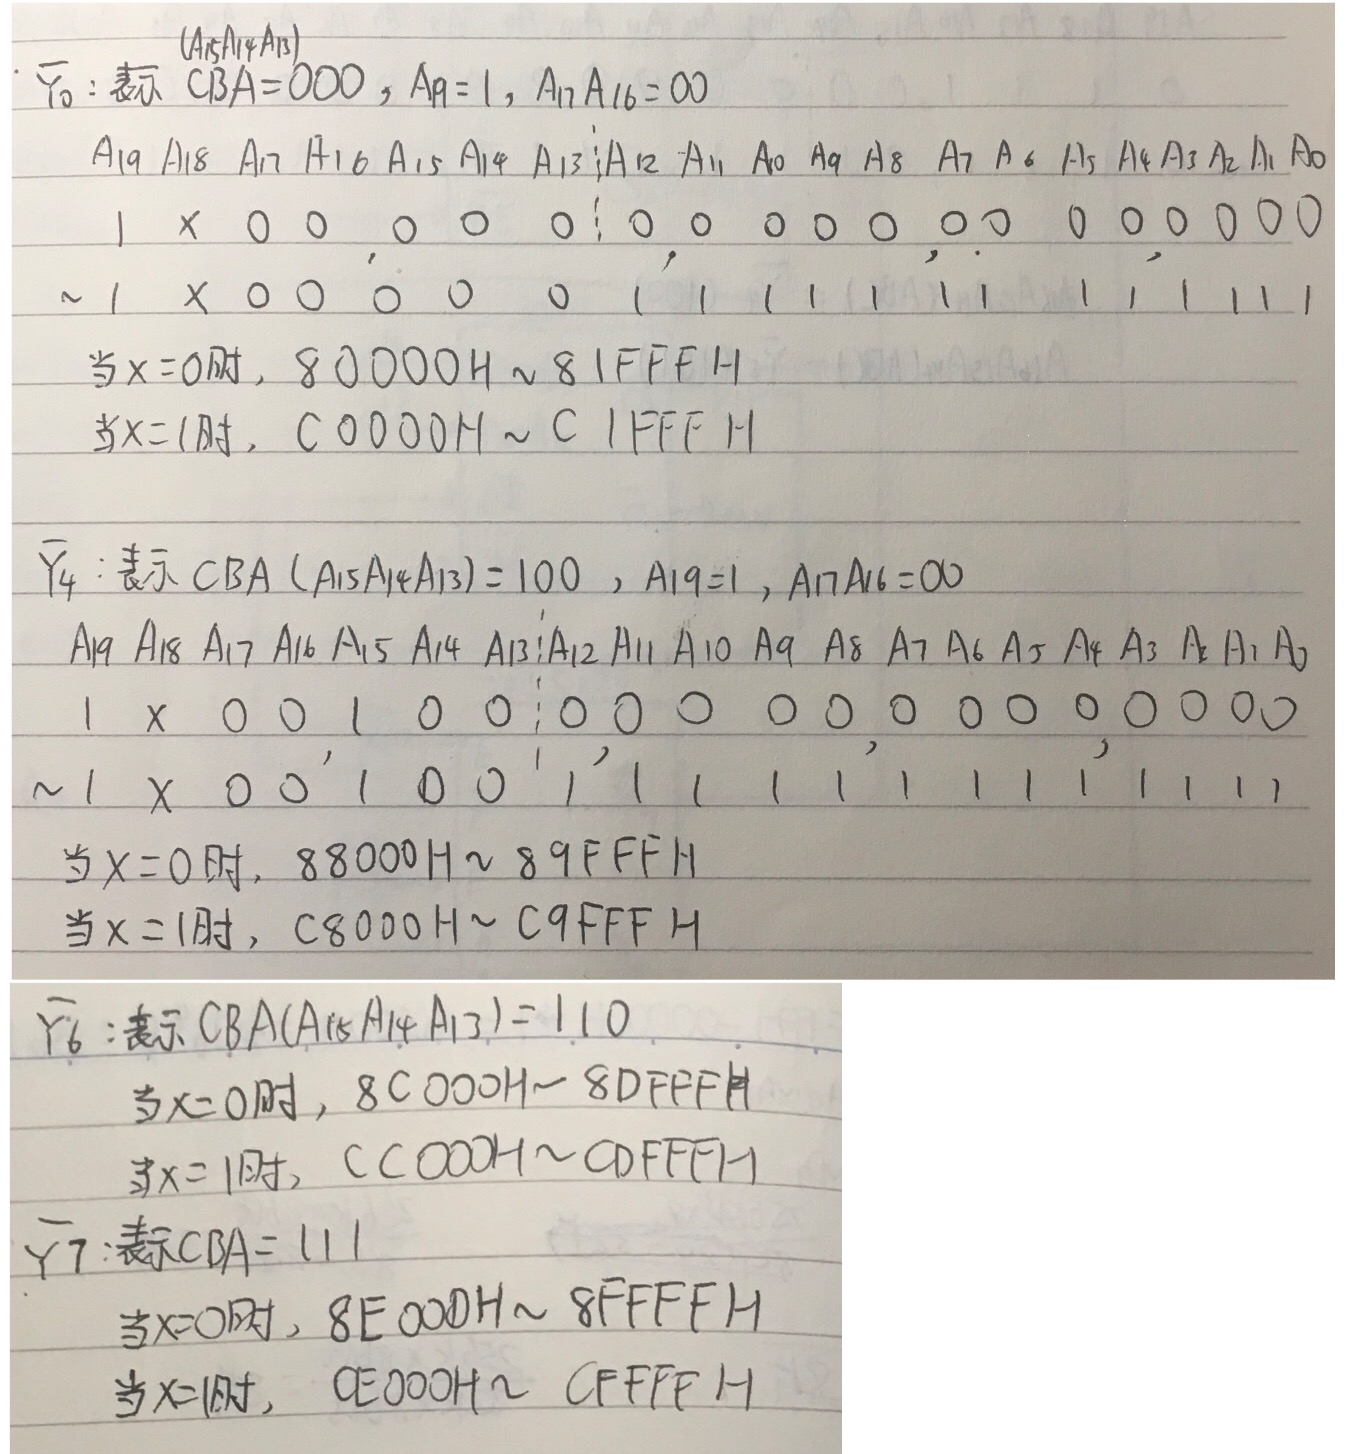 (A15A14A13)
Y̅0：表示 CBA=000，A9=1，A17A16=00
A19 A18 A17 A16 A15 A14 A13 A12 A11 A0 A9 A8 A7 A6 A5 A4 A3 A2 A1 A0
1 × 0 0 0 0 0 0 0 0 0 0 0 0 0 0 0 0 0 0
~1 × 0 0 0 0 0 1 1 1 1 1 1 1 1 1 1 1 1 1
当×=0时，80000H~81FFFH
当×=1时，C0000H~C1FFFH
Y̅4：表示 CBA（A15A14A13）=100，A19=1，A17A16=00
A19 A18 A17 A16 A15 A14 A13 A12 A11 A10 A9 A8 A7 A6 A5 A4 A3 A2 A1 A0
1 × 0 0 1 0 0 0 0 0 0 0 0 0 0 0 0 0 0 0
~1 × 0 0 1 0 0 1 1 1 1 1 1 1 1 1 1 1 1 1
当×=0时，88000H~89FFFH
当×=1时，C8000H~C9FFFH
Y̅6：表示CBA(A15A14A13)=110
当×=0时，8C000H~8DFFFH
当×=1时，CC000H~CDFFFH
Y̅7：表示CBA=111
当×=0时，8E000H~8FFFFH
当×=1时，CE000H~CFFFFH